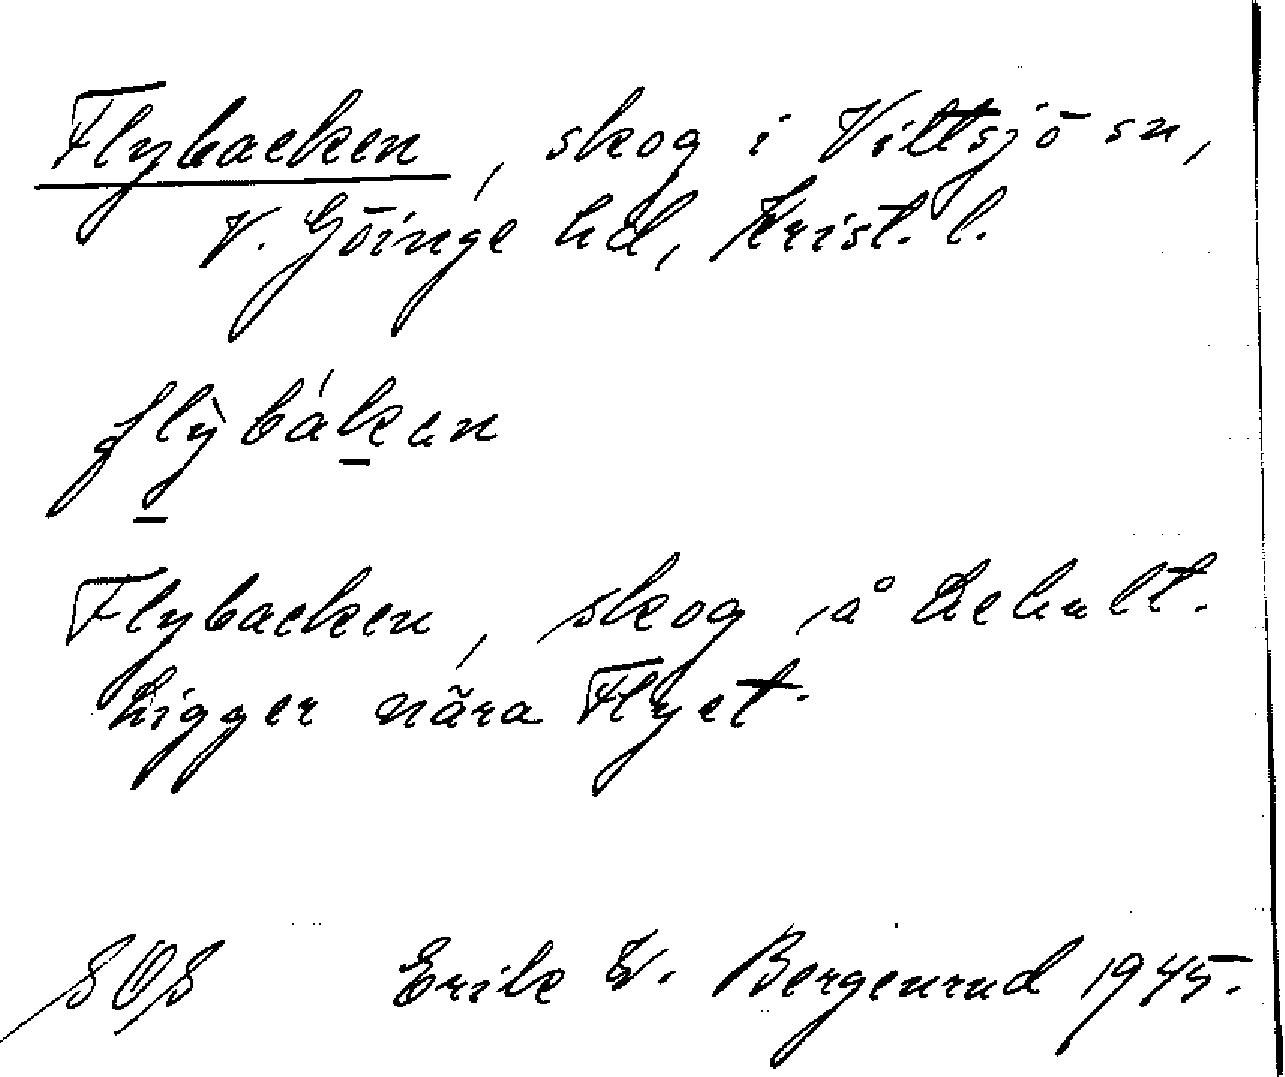 Flybacken, skog i Vittsjö sn,
V. Göinge hd, Krist. l.
flỳbákan
Flybacken, skog å Lehult.
Ligger nära Flyet.
SOS Erik W. Bergenrud 1945.